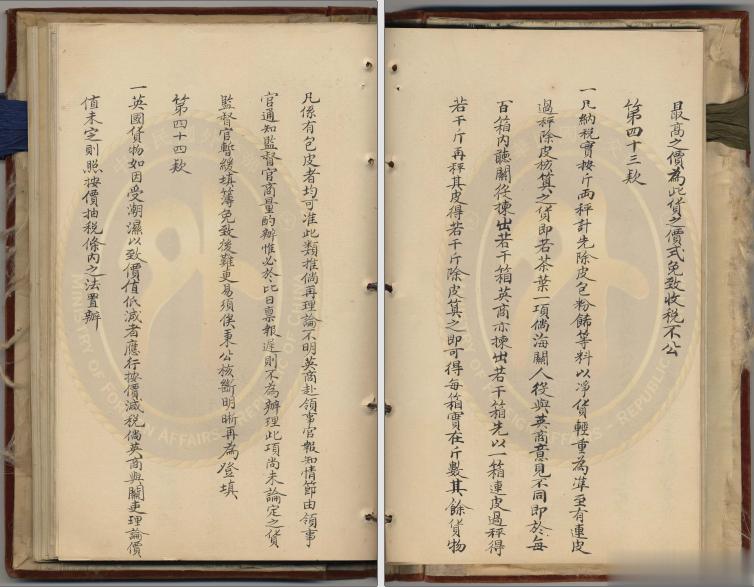 最高之價為此貨之價式免致收税不公
第四十三款
一凡納税實按斤兩秤計先除皮包粉飾等料以凈貨輕重為準至有連皮
過秤除皮核算之貨即若茶葉一項倘海關人役與英商意見不同即於每
百箱内聽關役揀出若干箱英商亦揀出若干箱先以一箱連皮過秤得
若干斤再秤其皮得若干斤除皮算之即可得每箱實在斤數其餘貨物
凡係有包皮者均可准此類推倘再理論不明英商赴領事官報知情節由領事
官通知監督官商量酌辦惟必於此日禀報遲則不為辦理此項尚未論定之貨
監督官暫緩填簿免致後難更易須俟秉公核斷明晰再為登填
第四十四款
一英國貨物如因受潮濕以致價值低減者應行按價減税倘英商與關吏理論價
值未定則照按價抽税條内之法置辦
MINISTRY OF FOREIGN AFFAIRS
FOREIGN AFFAIRS - REPUBLIC